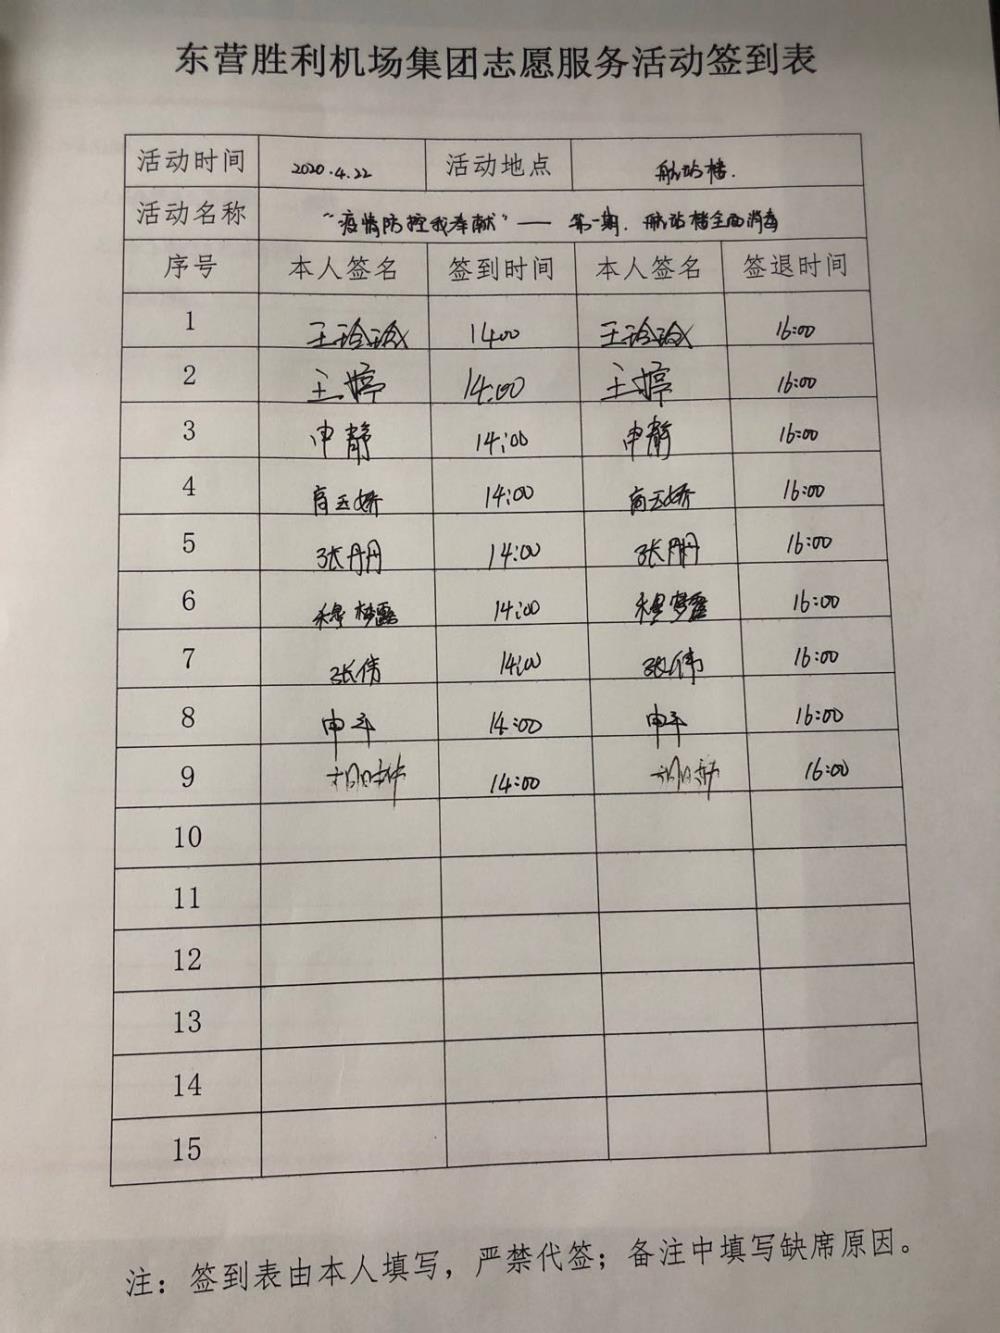 东营胜利机场集团志愿服务活动签到表
活动时间 2020.4.22 活动地点 航站楼.
活动名称 “疫情防控我奉献”—— 第一期. 航站楼全面消毒
序号 本人签名 签到时间 本人签名 签退时间
1 王玲玲 14:00 王玲玲 16:00
2 王婷 14:00 王婷 16:00
3 申静 14:00 申静 16:00
4 商玉娇 14:00 商玉娇 16:00
5 张丹丹 14:00 张丹丹 16:00
6 穆梦露 14:00 穆梦露 16:00
7 张伟 14:00 张伟 16:00
8 申平 14:00 申平 16:00
9 14:00 16:00
10
11
12
13
14
15
注：签到表由本人填写，严禁代签；备注中填写缺席原因。